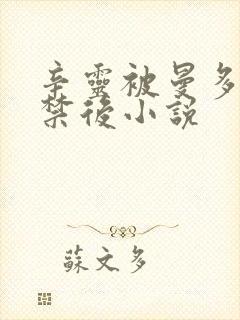 辛靈被曼多
禁後小説
蘇文多